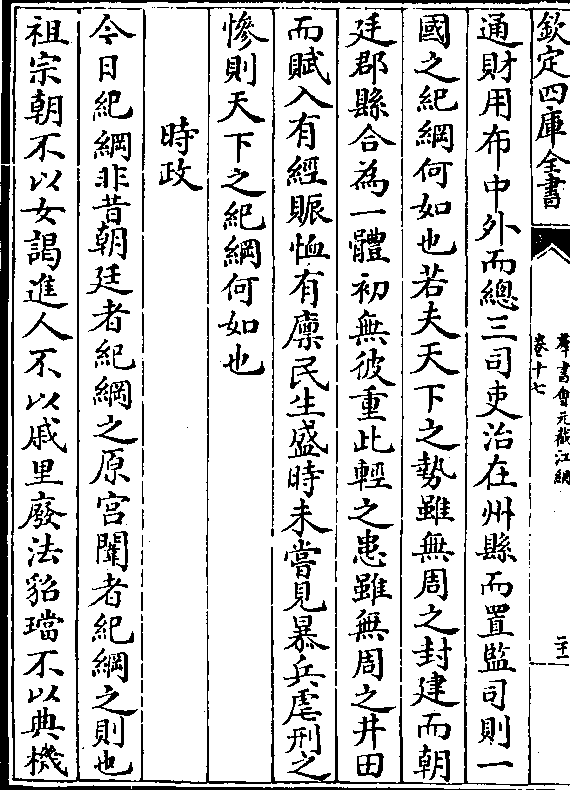 欽定四庫全書
羣書會元截江網
卷十七
二十一
通財用布中外而總三司吏治在州縣而置監司則一
國之紀綱何如也若夫天下之勢雖無周之封建而朝
廷郡縣合為一體初無彼重此輕之患雖無周之井田
而賦入有經賑恤有廪民生盛時未嘗見暴兵虐刑之
慘則天下之紀綱何如也
時政
今日紀綱非昔朝廷者紀綱之原宫闈者紀綱之則也
祖宗朝不以女謁進人不以戚里廢法貂璫不以典機